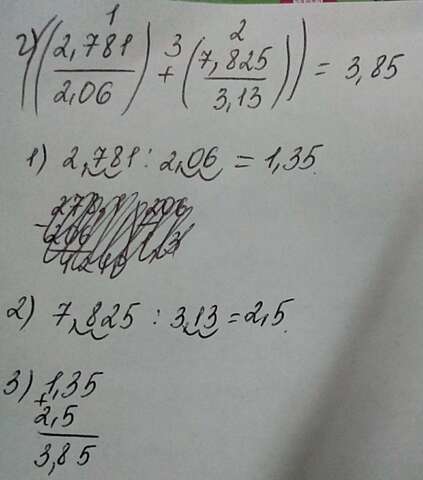 1 3 2
2) ((2,781/2,06) + (7,825/3,13)) = 3,85
1) 2,781 : 2,06 = 1,35.
2) 7,825 : 3,13 = 2,5.
3) 1,35
+
2,5
3,85